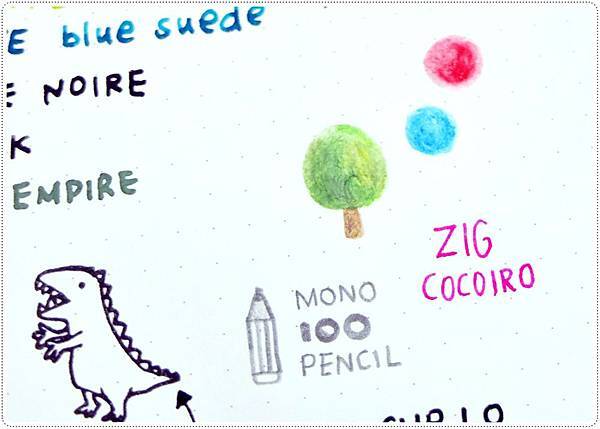 E blue suede
E NOIRE
K
EMPIRE
ZIG
COCOIRO
MONO
100
PENCIL